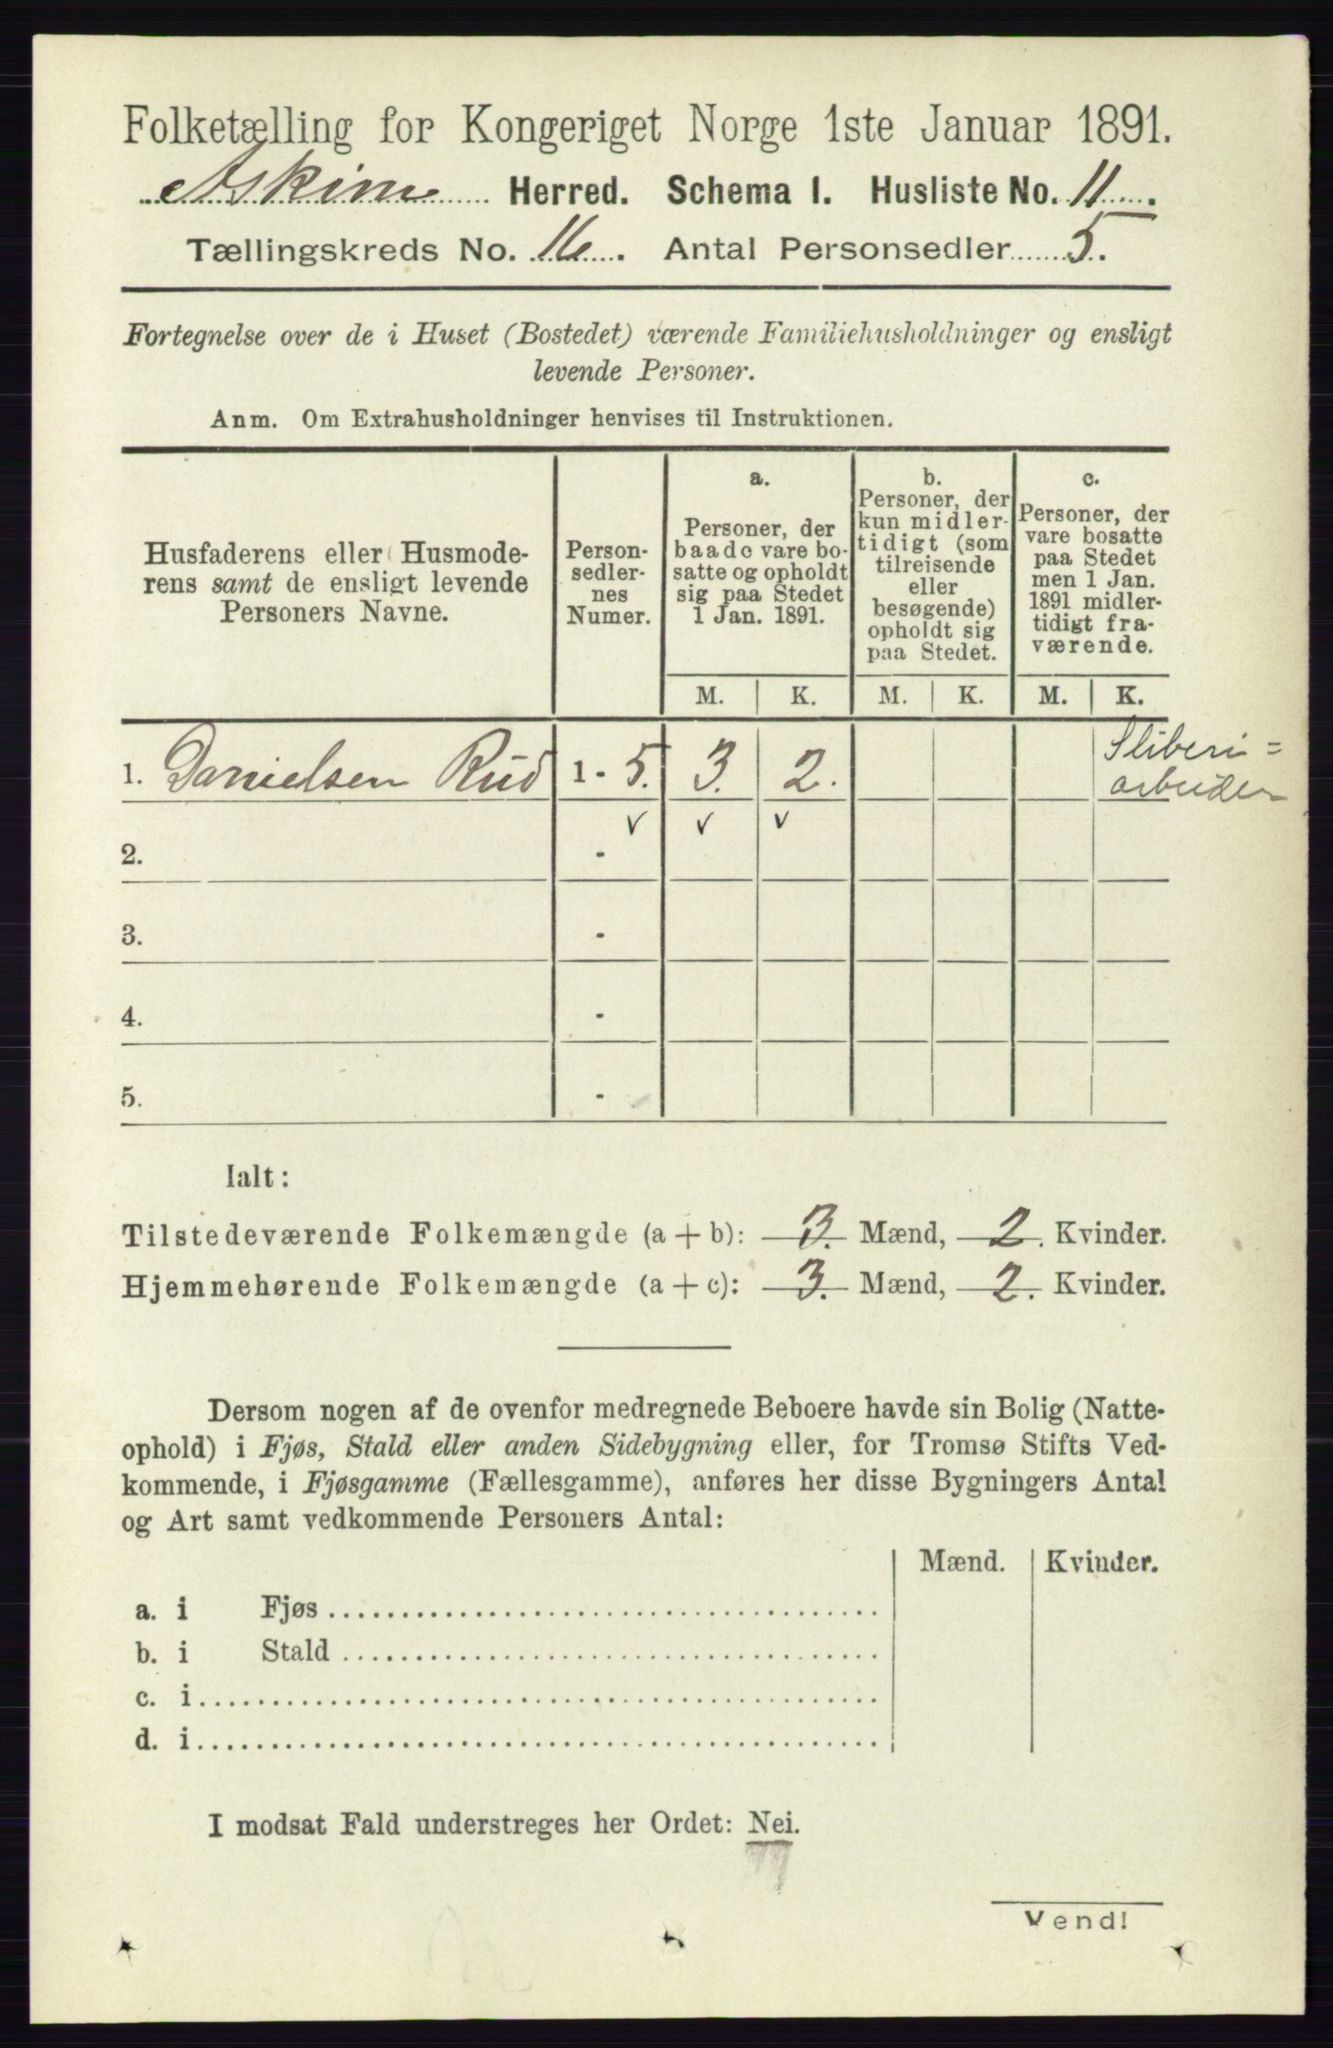 Folketælling for Kongeriget Norge 1ste Januar 1891.
Askim Herred. Schema I. Husliste No. 11.
Tællingskreds No. 16. Antal Personsedler 5.
Fortegnelse over de i Huset (Bostedet) værende Familiehusholdninger og ensligt
levende Personer.
Anm. Om Extrahusholdninger henvises til Instruktionen.
Husfaderens eller Husmode-
rens samt de ensligt levende
Personers Navne.
Person-
sedler-
nes
Numer.
a.
Personer, der
baade vare bo-
satte og opholdt
sig paa Stedet
1 Jan. 1891.
b.
Personer, der
kun midler-
tidigt (som
tilreisende
eller
besøgende)
opholdt sig
paa Stedet.
c.
Personer, der
vare bosatte
paa Stedet
men 1 Jan.
1891 midler-
tidigt fra-
værende.
M. K. M. K. M. K.
1. Danielsen Rud 1 - 5. 3. 2. Sliberi=
arbeider
2. - v v v
3. -
4. -
5. -
Ialt:
Tilstedeværende Folkemængde (a + b): 3. Mænd, 2. Kvinder.
Hjemmehørende Folkemængde (a + c): 3. Mænd, 2. Kvinder.
Dersom nogen af de ovenfor medregnede Beboere havde sin Bolig (Natte-
ophold) i Fjøs, Stald eller anden Sidebygning eller, for Tromsø Stifts Ved-
kommende, i Fjøsgamme (Fællesgamme), anføres her disse Bygningers Antal
og Art samt vedkommende Personers Antal:
Mænd. Kvinder.
a. i Fjøs
b. i Stald
c. i
d. i
I modsat Fald understreges her Ordet: Nei.
Vend!